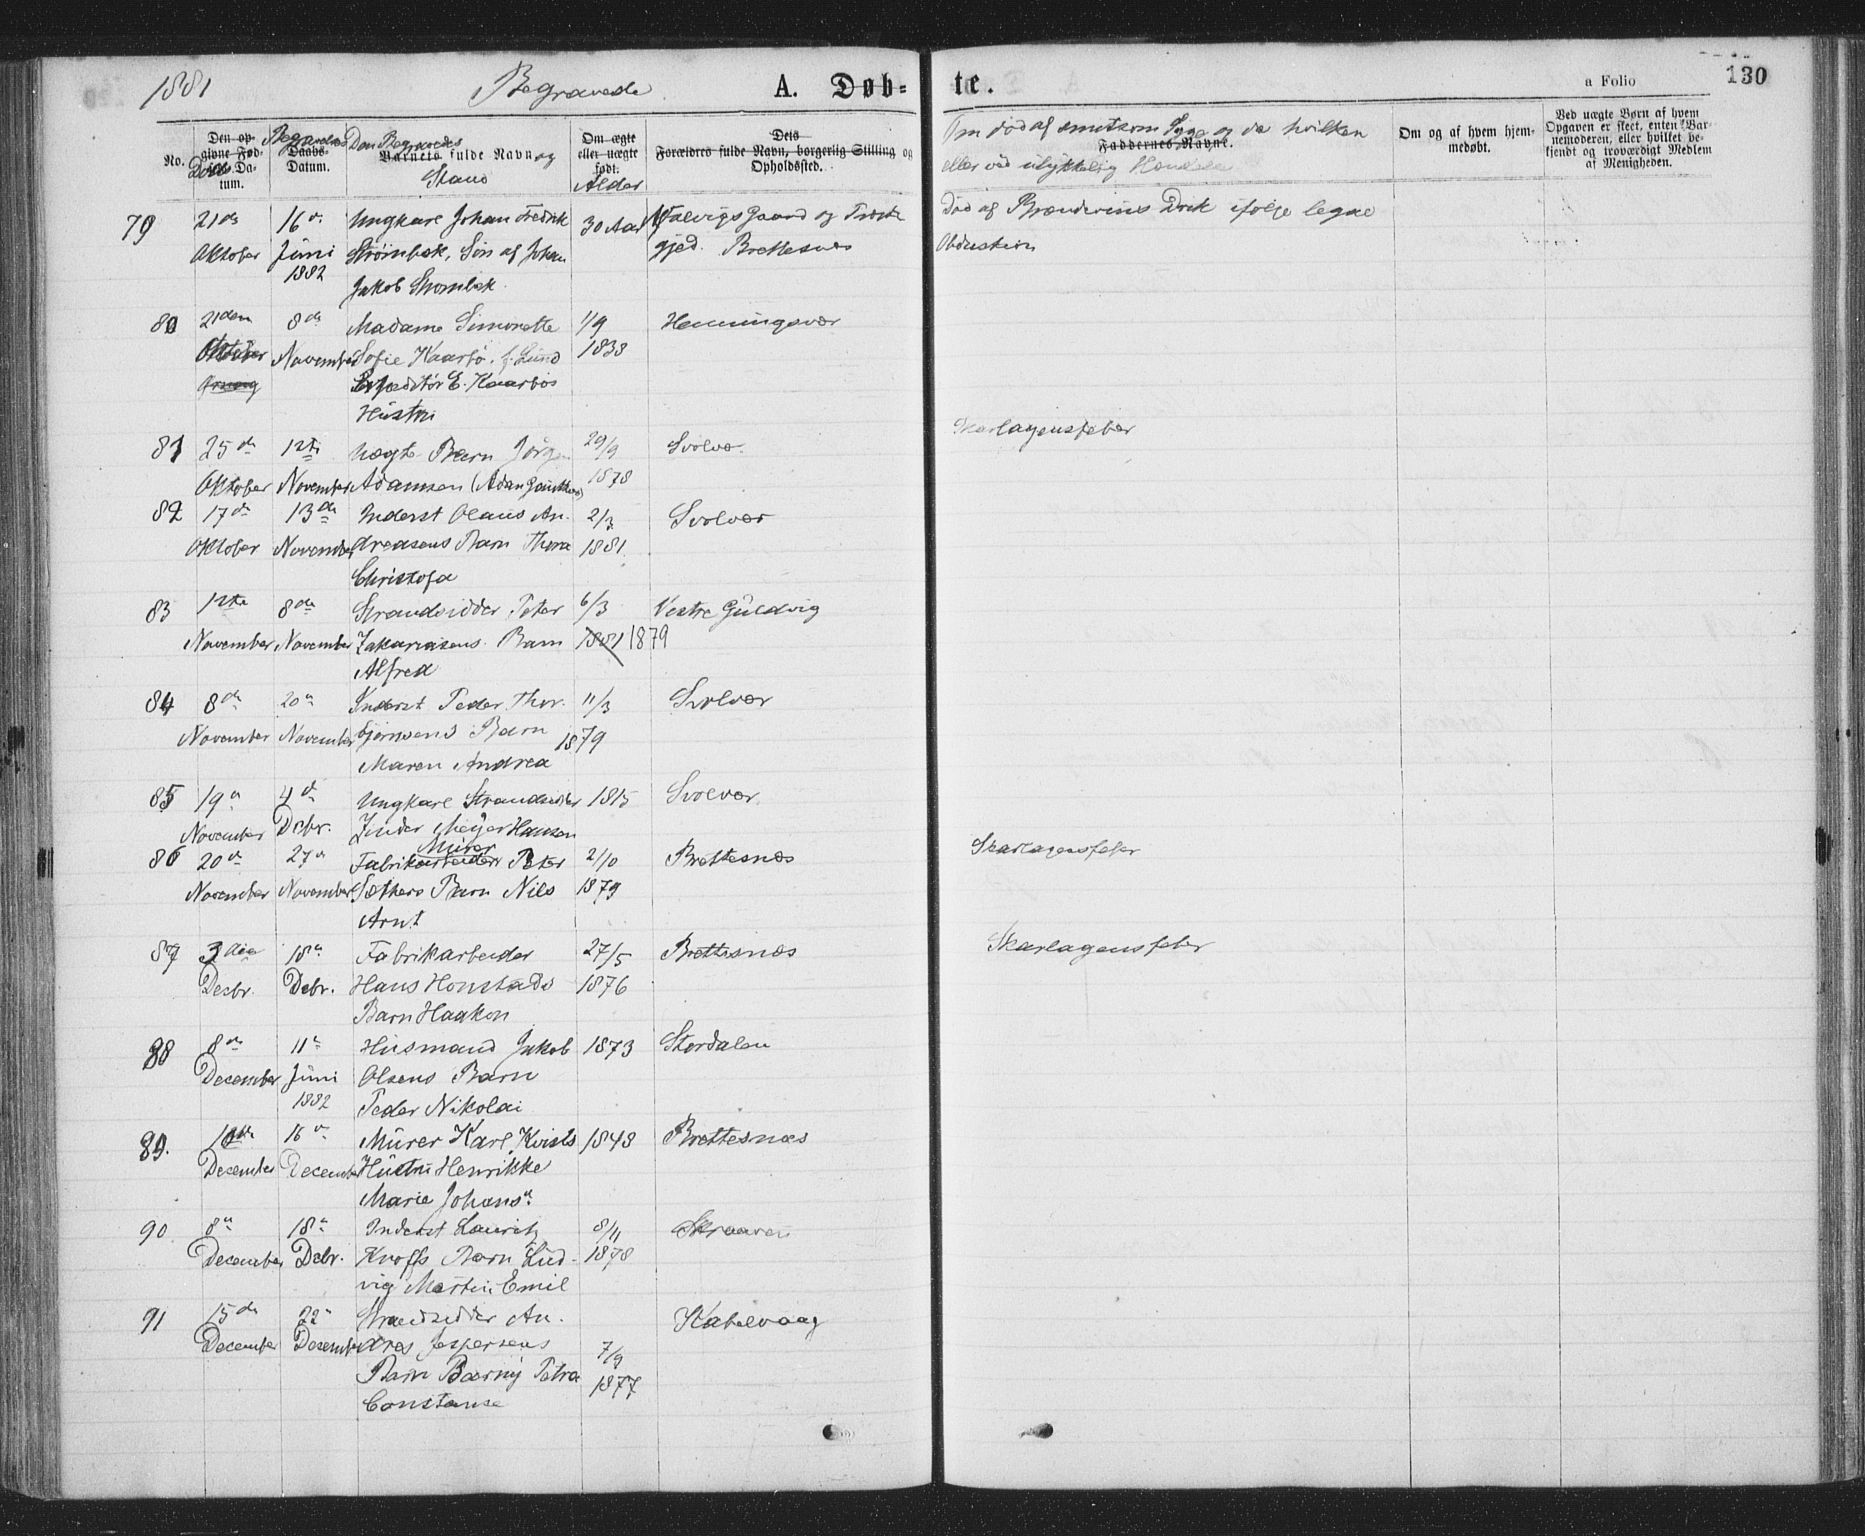 1881 Begravede A. Døb-te. a Folio 130
No.
Den op-givne Fød-sels-Da-tum. Døds
Begravelses Daabs-Datum.
Den Begravedes Barnets fulde Navn og Stand
Om ægte eller uægte født. Alder
Dets Forældres fulde Navn, borgerlig Stilling og Opholdssted.
Om død af smitsom Syge og da hvilken
Faddernes Navne.
eller ved ulykkelig Hændelse
Om og af hvem hjem-medøbt.
Ved uægte Børn af hvem
Opgaven er skeet, enten Bar-
nemoderen, eller hvilket be-
kjendt og troværdigt Medlem
af Menigheden.
79 21de 16de Ungkarl Johan Fredrik 30 Aar Gaard og Død af Brændevins Drik ifølge legal
Oktober Juni Strømbæk, Søn af Johan gjed. Brettesnæs Obduktion
1882 Jakob Strømbæk.
80 21den 8de Madame Simonette 1/9 Henningsvær
Oktober November Sofie Kaarbø. f. Lund 1838
Expeditør E. Kaarbøs
Hustru
81 25de 12te Uægte Barn Jørgen 29/9 Svolvær Skarlagensfeber
Oktober November Adamsen (Adam 1878
82 17de 13de Inderst Olaus An- 2/3 Svolvær
Oktober November dreasens Barn Thora 1881
Christofa
83 12te 8de Strandsidder Peter 6/3 Vestre Guldvig
November November Zakariasens Barn 1881 1879
Alfred
84 8de 20de Inderst Peder Thor- 11/3 Svolvær
November November bjørnsens Barn 1879
Maren Andrea
85 19de 4de Ungkarl Strandsidder 1815 Svolvær
November Debr. Zinder Meyer Hansen
Murer
86 20de 27de Fabrikarbeider Peter 2/10 Brettesnæs Skarlagensfeber
November November Sæthers Barn Nils 1879
Arnt
87 3die 18de Fabrikarbeider 27/5 Brettesnæs Skarlagensfeber
Desbr. Debr. Hans Honstads 1876
Barn Haakon
88 8de 11te Husmand Jakob 1873 Stordalen
December Juni Olsens Barn
1882 Peder Nikolai
89. 10de 16de Murer Karl Kvists 1848 Brettesnæs
December December Hustru Henrikke
Marie Johansn
90 8de 18de Inderst Lauritz 8/11 Skraaven
December Debr. Kroffs Barn Lud- 1878
vig Martin Emil
91 15de 22de Strandsidder An- Kabelvaag
December Desember dreas Jespersens 7/9
Barn Berny Petra 1877
Constanse